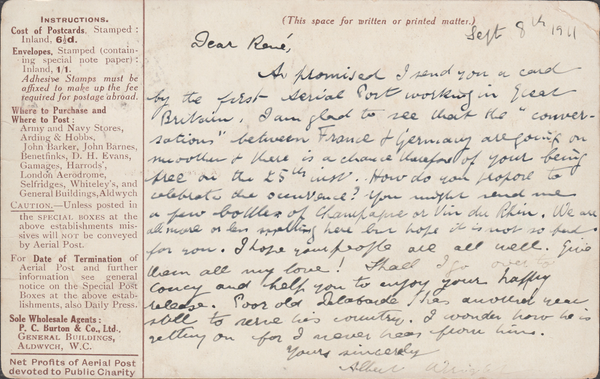 INSTRUCTIONS.
Cost of Postcards, Stamped :
Inland, 6½d.
Envelopes, Stamped (contain-
ing special note paper) :
Inland, 1/1.
Adhesive Stamps must be
affixed to make up the fee
required for postage abroad.
Where to Purchase and
Where to Post :
Army and Navy Stores,
Arding & Hobbs,
John Barker, John Barnes,
Benetfinks, D. H. Evans,
Gamages, Harrods',
London Aerodrome,
Selfridges, Whiteley's, and
General Buildings, Aldwych
CAUTION.—Unless posted in
the SPECIAL BOXES at the
above establishments mis-
sives will NOT be conveyed
by Aerial Post.
For Date of Termination of
Aerial Post and further
information see general
notice on the Special Post
Boxes at the above estab-
lishments, also Daily Press.
Sole Wholesale Agents :
P. C. Burton & Co., Ltd.,
GENERAL BUILDINGS,
ALDWYCH, W.C.
Net Profits of Aerial Post
devoted to Public Charity
(This space for written or printed matter.)
Sept 8th 1911
Dear René,
As promised I send you a card
by the first Aerial Post working in Great
Britain. I am glad to see that the "conver-
sations" between France & Germany are going on
smoother & there is a chance therefore of your being
free on the 25th inst. How do you propose to
celebrate the occurrence? You might send me
a few bottles of Champagne or Vin du Rhin. We are
all more or less melting here but hope it is not so bad
for you. I hope your people are all well. Give
them all my love! Shall I go over to
Coucy and help you to enjoy your happy
release. Poor old has another year
still to serve his country. I wonder how he is
getting on for I never hear from him.
Yours sincerely
Albert